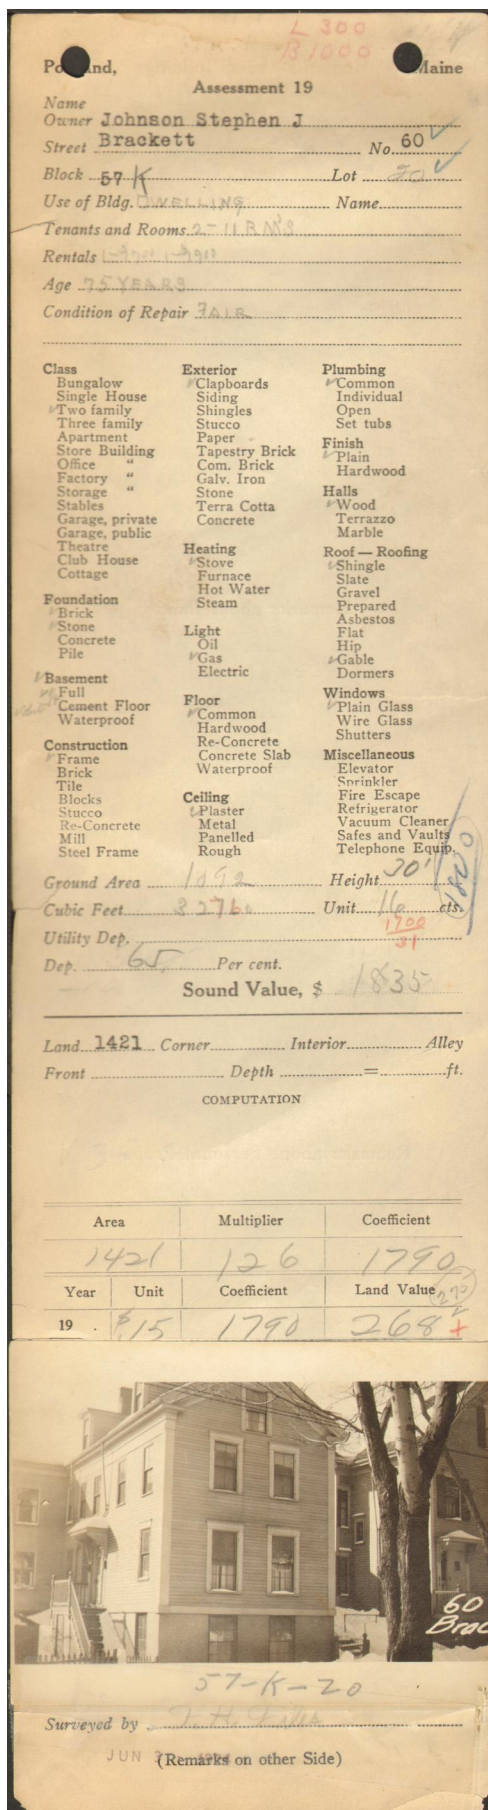 L 300
B 1000
Portland, Maine
Assessment 19
Name
Owner Johnson Stephen J
Street Brackett No. 60
Block 57 K Lot 20
Use of Bldg. DWELLING Name
Tenants and Rooms 2-11 RMS
Rentals
Age 75 YEARS
Condition of Repair FAIR
Class
Bungalow
Single House
Two family
Three family
Apartment
Store Building
Office "
Factory "
Storage "
Stables
Garage, private
Garage, public
Theatre
Club House
Cottage
Foundation
Brick
Stone
Concrete
Pile
Basement
Full
Cement Floor
Waterproof
Construction
Frame
Brick
Tile
Blocks
Stucco
Re-Concrete
Mill
Steel Frame
Exterior
Clapboards
Siding
Shingles
Stucco
Paper
Tapestry Brick
Com. Brick
Galv. Iron
Stone
Terra Cotta
Concrete
Heating
Stove
Furnace
Hot Water
Steam
Light
Oil
Gas
Electric
Floor
Common
Hardwood
Re-Concrete
Concrete Slab
Waterproof
Ceiling
Plaster
Metal
Panelled
Rough
Plumbing
Common
Individual
Open
Set tubs
Finish
Plain
Hardwood
Halls
Wood
Terrazzo
Marble
Roof — Roofing
Shingle
Slate
Gravel
Prepared
Asbestos
Flat
Hip
Gable
Dormers
Windows
Plain Glass
Wire Glass
Shutters
Miscellaneous
Elevator
Sprinkler
Fire Escape
Refrigerator
Vacuum Cleaner
Safes and Vaults
Telephone Equip.
1820
Ground Area 1092 Height 30'
Cubic Feet 32760 Unit 16 cts.
1700
31
Utility Dep.
Dep. 65 Per cent.
Sound Value, $ 1835
Land 1421 Corner Interior Alley
Front Depth = ft.
COMPUTATION
Area Multiplier Coefficient
1421 126 1790
Year Unit Coefficient Land Value 275
19 . $.15 1790 268 +
60
Brac
57-K-20
Surveyed by
JUN
(Remarks on other Side)